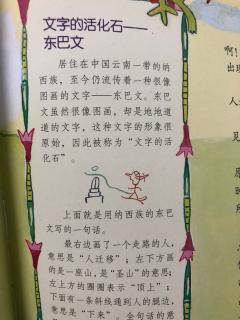 文字的活化石——
东巴文
居住在中国云南一带的纳
西族，至今仍流传着一种很像
图画的文字——东巴文。东巴
文虽然很像图画，却是地地道
道的文字，这种文字的形象很
原始，因此被称为“文字的活
化石”。
上面就是用纳西族的东巴
文写的一句话。
最右边画了一个走路的人，
意思是“人迁移”；左下方画
的是一座山，是“圣山”的意思；
左上方的圈圈表示“顶上”；
下面有一条斜线通到人的腿边，
意思是“下来”。全句话的意
啊！
出现
人